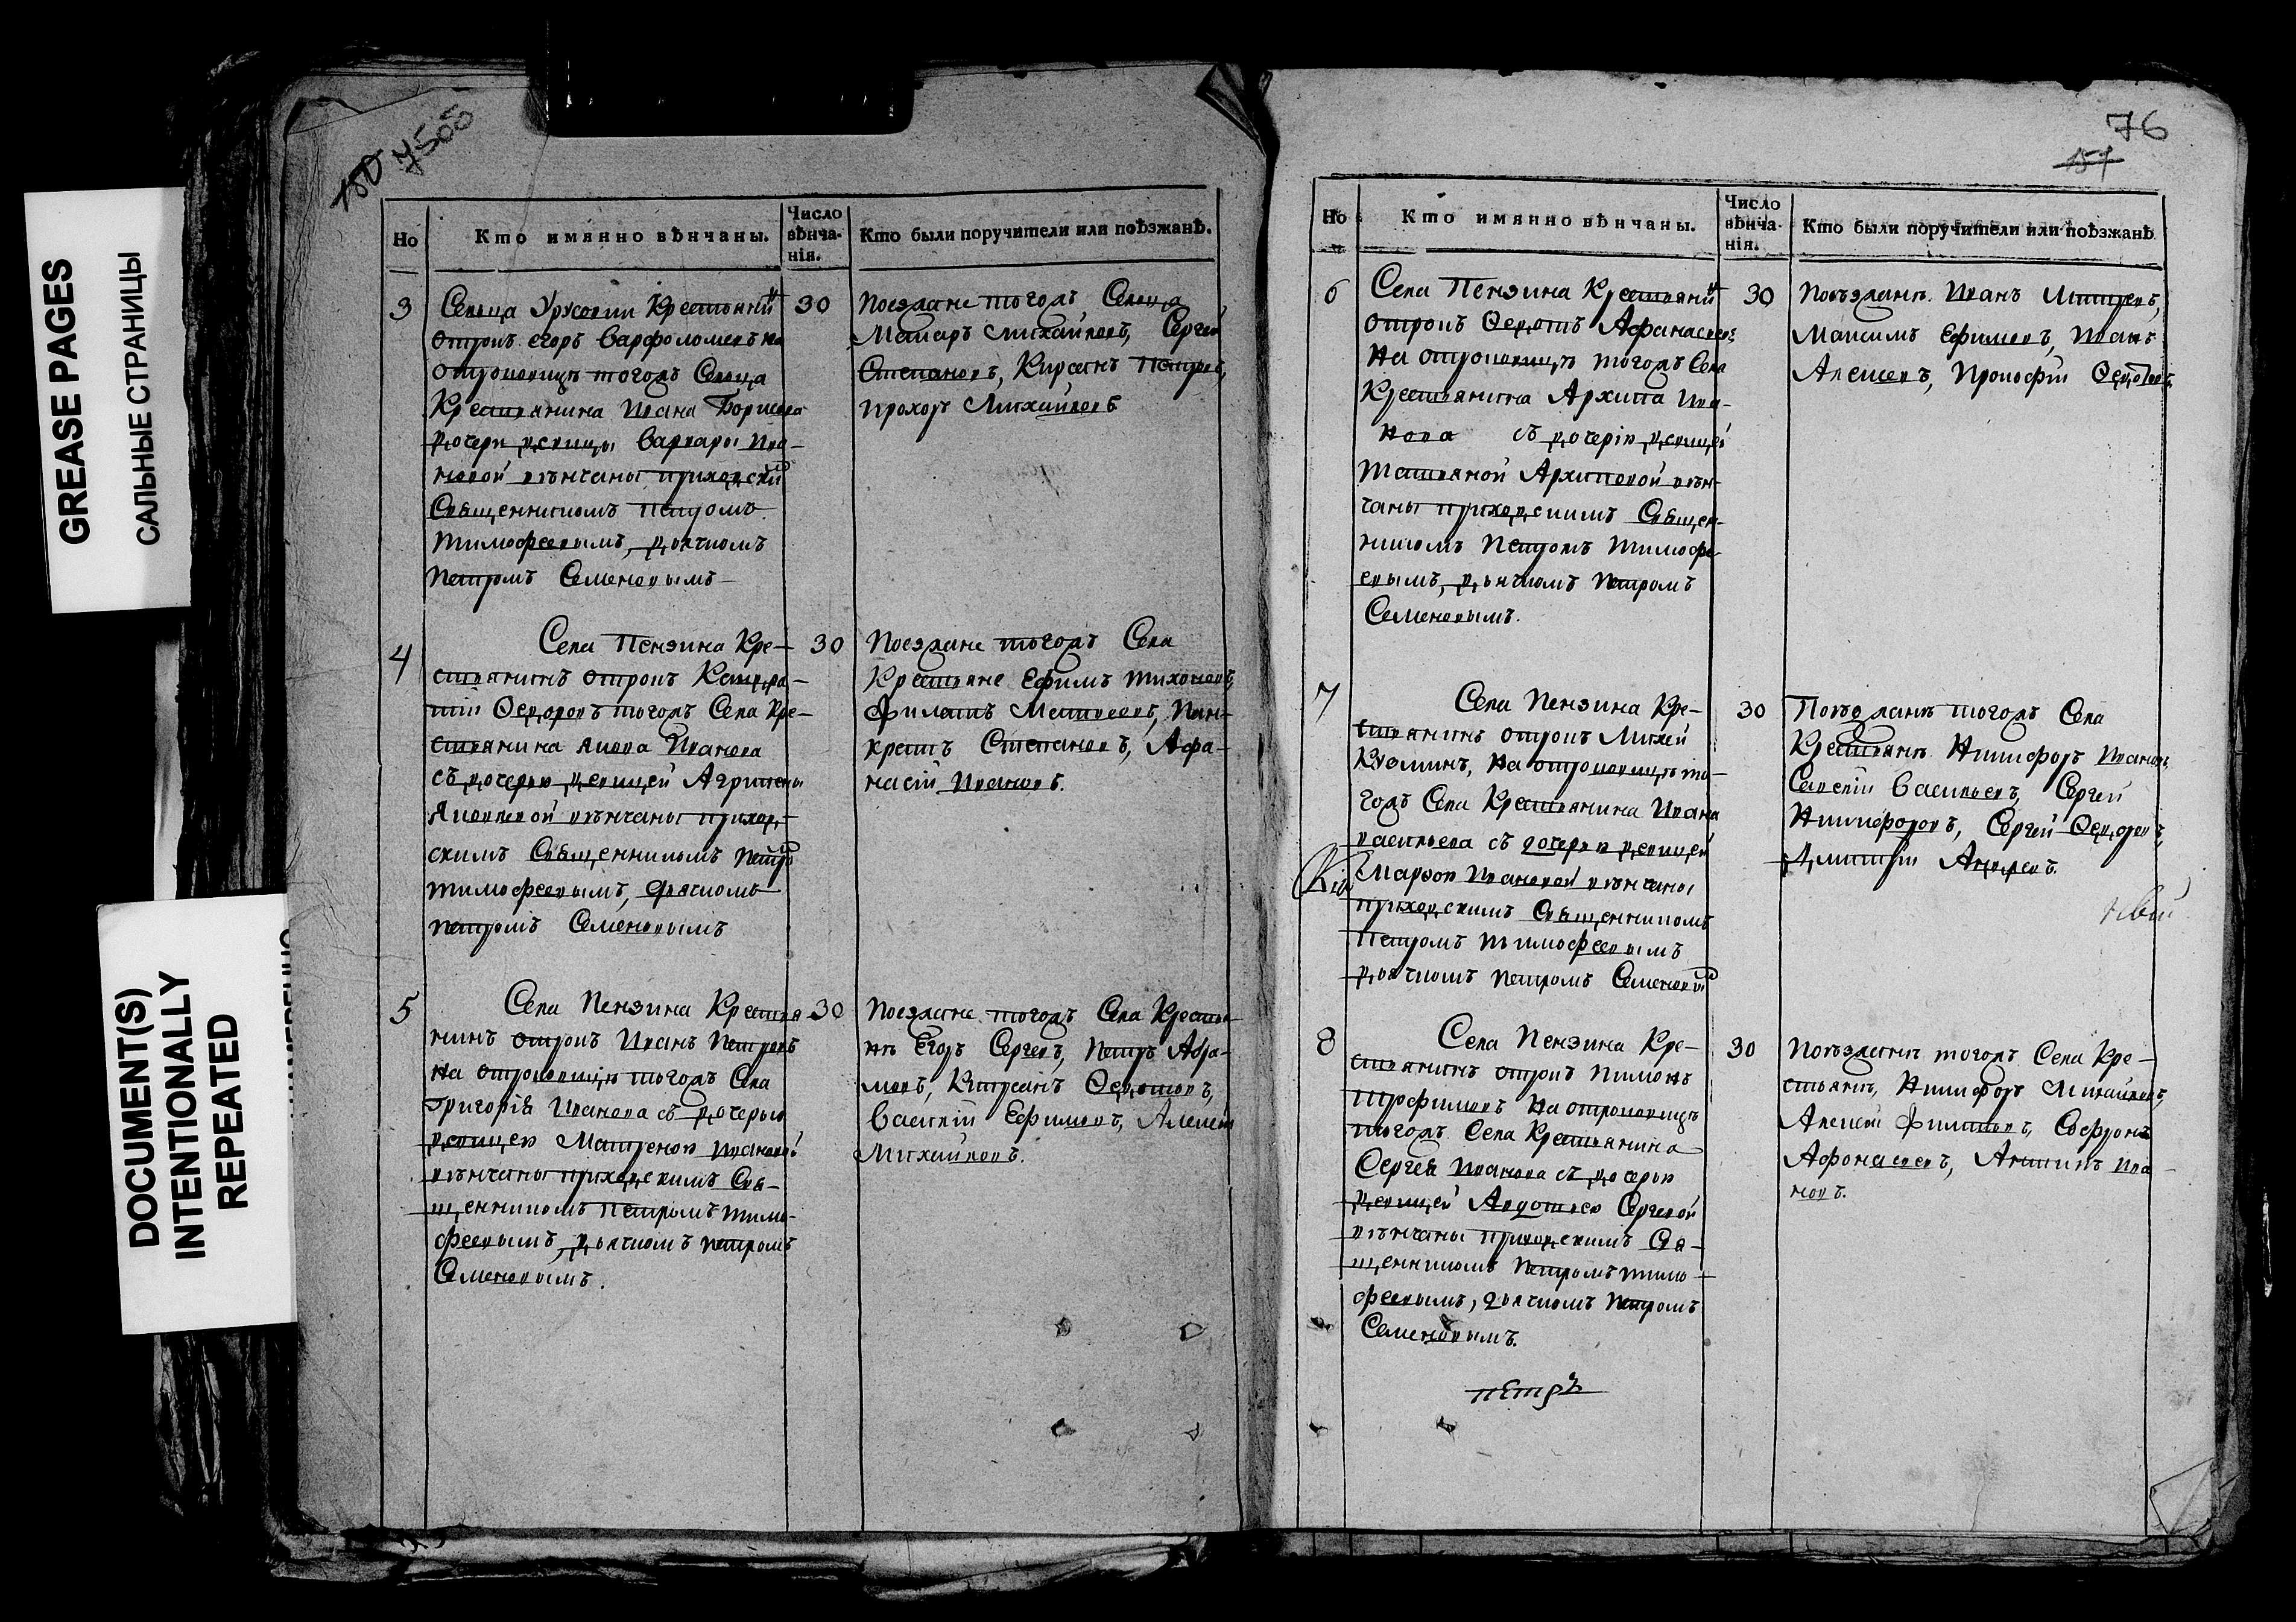 GREASE PAGES
САЛЬНЫЕ СТРАНИЦЫ
DOCUMENT(S)
INTENTIONALLY
REPEATED
Но
Кто имянно вѣнчаны.
Число
вѣнча-
нія.
Кто были поручители или поѣзжанѣ.
3
Сельца Урусовки Крестьянинъ
отрокъ егоръ варфоломеевъ на
отроковицѣ тогожъ Сельца
Крестьянина Ивана Борисова
дочери девицы варвары Ива-
новой вѣнчаны приходским
Священникомъ Петромъ
тимофеевымъ, дьячкомъ
Петромъ Семеновымъ
30
Поезжане тогожъ Сельца
Макаръ Михайловъ, Сергей
Степановъ, Кирсанъ Петровъ,
прохоръ Михайловъ
4
Села Пензина Кре-
стьянинъ отрокъ
Федоровъ тогожъ Села Кре-
стьянина якова Иванова
съ дочерью девицей Агрипены
Яковлевой вѣнчаны приход-
скимъ Священникомъ Петро
тимофеевымъ, дьячкомъ
петромъ Семеновымъ
30
Поезжане тогожъ Села
Крестьяне Ефимъ тихоновъ,
Филатъ Матвеевъ, Пан-
кратъ Степановъ, Афа-
насій Ивановъ.
5
Села Пензина Крестья
нинъ отрокъ Иванъ Петровъ
на отроковицѣ тогожъ Села
Григорія Иванова съ дочерью
девицею Матреною Ивановой
вѣнчаны приходскимъ Свя-
щенникомъ Петромъ тимо-
феевымъ, дьячкомъ петромъ
Семеновымъ.
30
Поезжане тогожъ Села Крестья
нѣ Егоръ Сергеевъ, Петръ Абра-
мовъ, Кирсанъ Федотовъ,
Василій Ефимовъ, Алексей
Михайловъ.
76
157
Но
Кто имянно вѣнчаны.
Число
вѣнча-
нія.
Кто были поручители или поѣзжанѣ
6
Села Пензина Крестьянинъ
отрокъ Федотъ Афанасьевъ
на отроковицѣ тогожъ Села
Крестьянина Архипа Ива-
нова съ дочерію девицей
Татьяной Архиповой вѣн-
чаны приходскимъ Священ-
никомъ Петромъ Тимофе-
евымъ, дьячкомъ Петромъ
Семеновымъ.
30
Поѣзжанѣ. Иванъ
Максимъ Ефимовъ, Иванъ
Алексеевъ, Прокофій Федотовъ,
7
Села Пензина Кре-
стьянинъ отрокъ Михей
Кузминъ, на отроковицѣ то-
гожъ Села Крестьянина Ивана
васильева съ дочерью девицей
Марфою Ивановой вѣнчаны
приходскимъ Священникомъ
Петромъ тимофеевымъ
дьячкомъ Петромъ Семеновым
30
Поѣзжанѣ тогожъ Села
Крестьянѣ Никифоръ Ивановъ,
Савелій Васильевъ, Сергей
Никифоровъ, Сергей Федоровъ,
Дмитрій Андреевъ.
8
Села Пензина Кре-
стьянинъ отрокъ Пимонъ
трофимовъ на отроковицѣ
тогожъ Села Крестьянина
Сергея Иванова съ дочерью
девицей Авдотьею Сергевой
вѣнчаны приходскимъ Свя-
щенникомъ Петромъ тимо-
феевымъ, дьячкомъ Петромъ
Семеновымъ.
30
Поѣзжанѣ тогожъ Села Кре-
стьянѣ, Никифоръ Михайловъ,
Алексей Филиповъ, Софронъ
Афонасьевъ, Антипъ Ива-
новъ.
Петръ